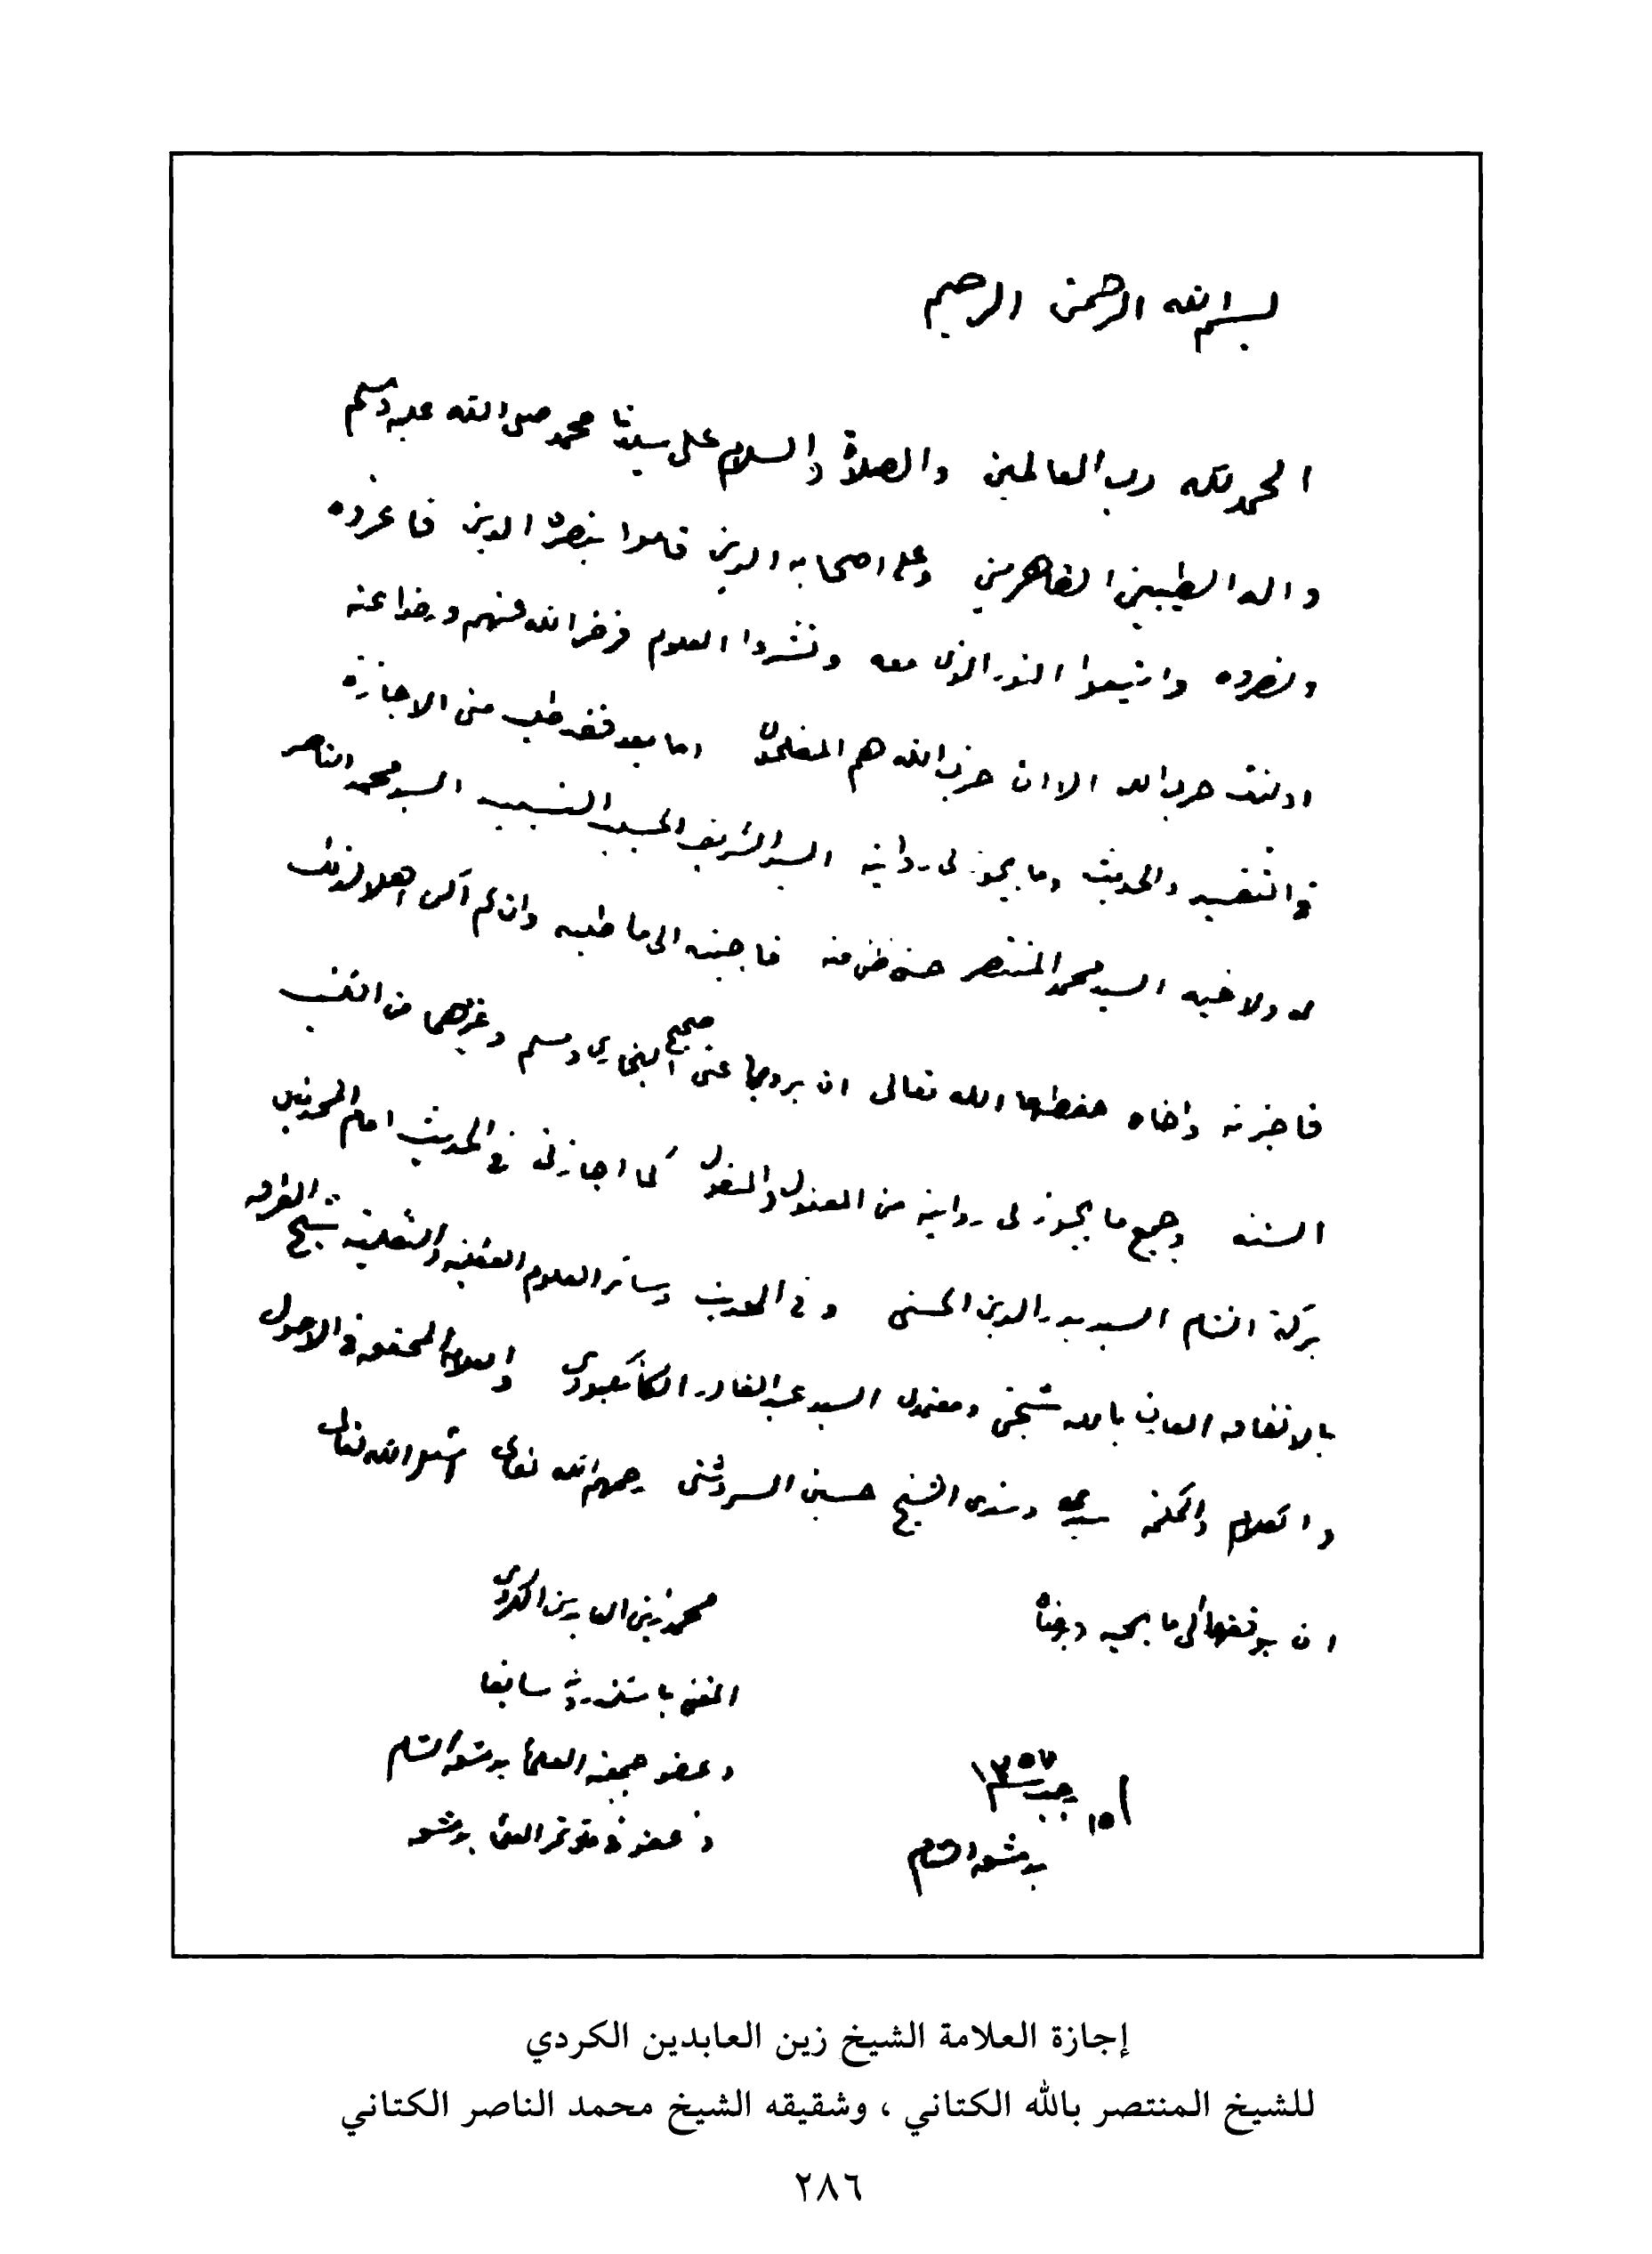 بسم الله الرحمن الرحيم
الحمد لله رب العالمين والصلاة والسلام على سيدنا محمد صلى الله عليه وسلم
واله الطيبين الطاهرين وعلى اصحابه الذين قاموا بنصرة الدين فاعزوه
ونصروه واتبعوا النور الذي معه ونشروا العلوم فرضي الله عنهم ورضوا عنه
اولئك حزب الله الا ان حزب الله هم المفلحون اما بعد فقد طلب مني الاجازة
في التفسير والحديث وما يجوز لي روايته السيد الشريف الحسيب النسيب السيد محمد الناصر
له ولاخيه السيد محمد المنتصر حسن ظن منه فاجبته الى ما طلبه وان لم اكن اهلا لذلك
فاجزته واخاه حفظهما الله تعالى ان يرويا عني صحيح البخاري ومسلم وغيرهما من الكتب
الستة وجميع ما يجوز لي روايته من المعقول والمنقول كما اجازني في الحديث امام المحدثين
بركة الشام السيد بدر الدين الحسني وفي الحديث وسائر العلوم العقلية والنقلية شيخ
بالاتفاق العارف بالله شيخي ومعتمدي السيد عبد القادر والعلامة المحقق في الاصول
والكلام والحكمة سيدي وسندي الشيخ حسين رحمهم الله تعالى الله تعالى
ان يوفقهما الى ما يحبه ويرضاه
محمد زين العابدين الكردي
المفتي سابقا
وعضو جمعية العلماء بدمشق الشام
وعضو في مؤتمر العلماء بدمشق
١٥ رجب سنة ١٣٥٧
بدمشق الشام
إجازة العلامة الشيخ زين العابدين الكردي
للشيخ المنتصر بالله الكتاني ، وشقيقه الشيخ محمد الناصر الكتاني
٢٨٦